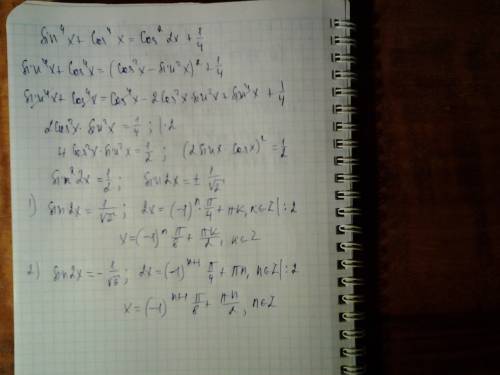 sin⁴x + cos⁴x = cos² 2x + 1/4
sin⁴x + cos⁴x = (cos²x − sin²x)² + 1/4
sin⁴x + cos⁴x = cos⁴x − 2cos²x·sin²x + sin⁴x + 1/4
2cos²x · sin²x = 1/4 ; |·2
4cos²x·sin²x = 1/2 ; (2sinx·cosx)² = 1/2
sin²2x = 1/2 ; sin2x = ± 1/√2
1) sin2x = 1/√2 ; 2x = (−1)ⁿ·π/4 + πk, k∈Z | :2
x = (−1)ⁿ π/8 + πk/2, k∈Z
2) sin2x = − 1/√2 ; 2x = (−1)ⁿ⁺¹ π/4 + πn, n∈Z | :2
x = (−1)ⁿ⁺¹ π/8 + πn/2, n∈Z